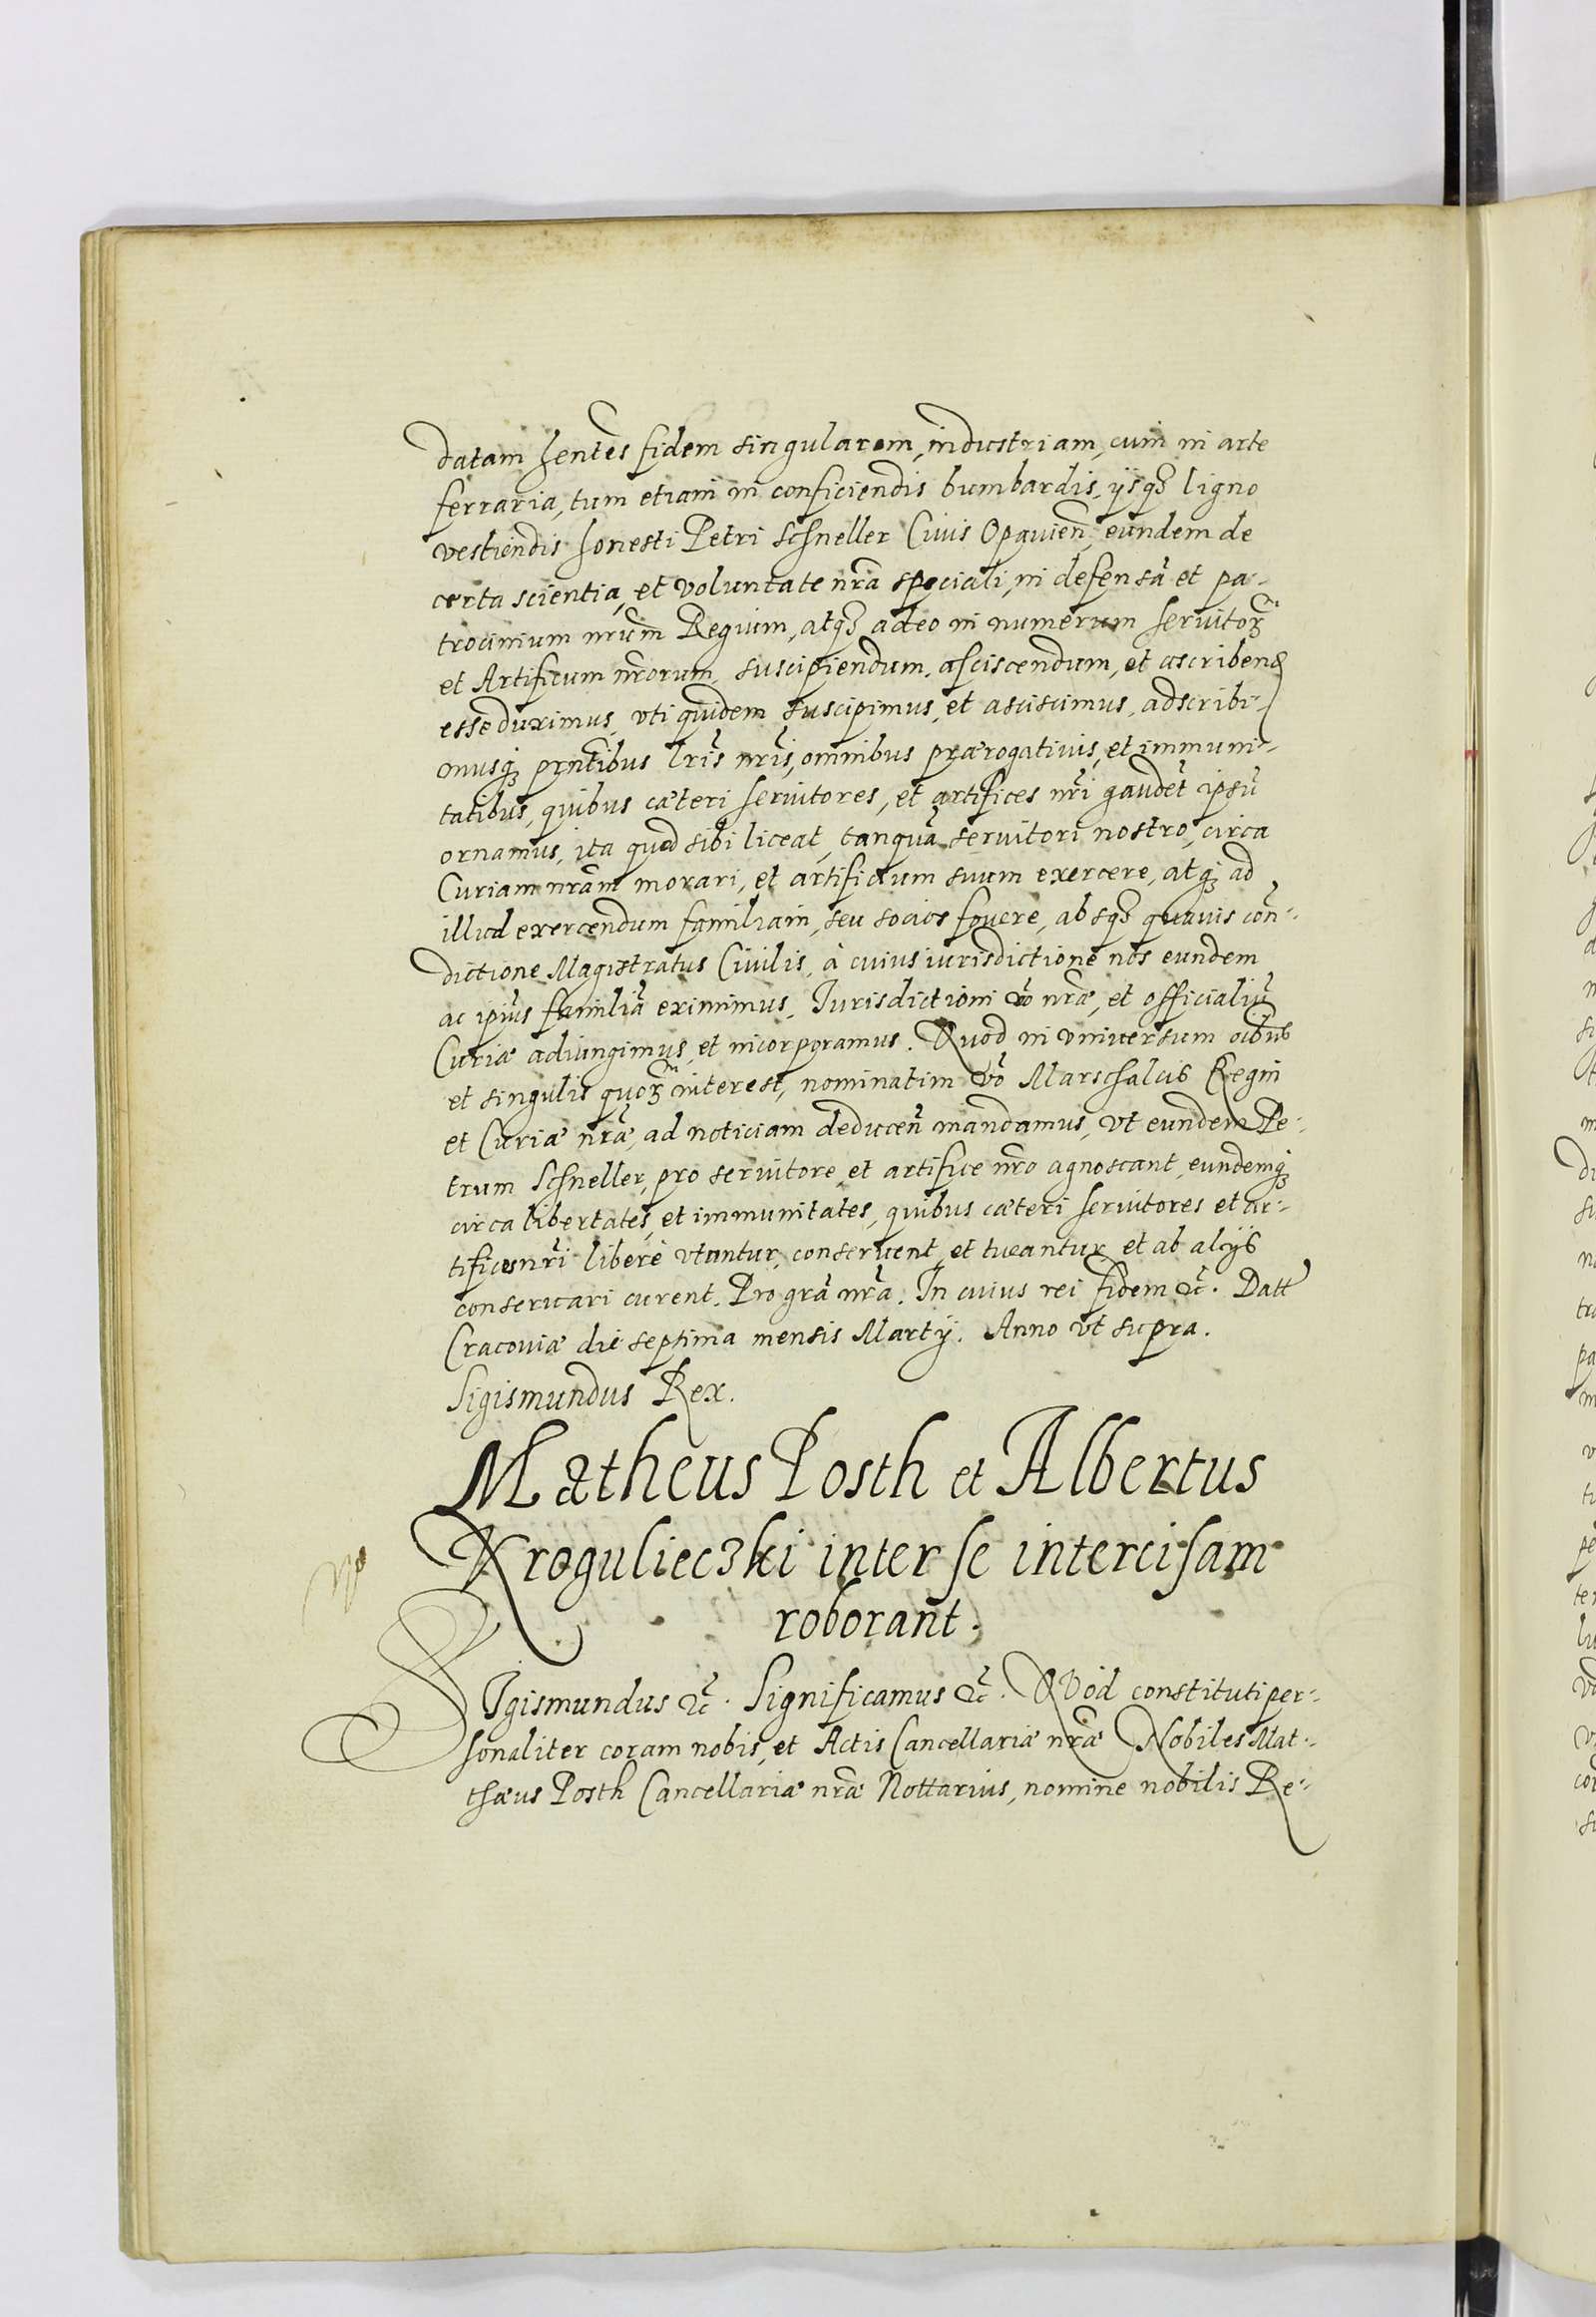 datam hentes fidem singularem, industriam, cum in arte
ferraria, tum etiam in conficiendis bumbardis, ijsq₃ ligno
vestiendis honesti Petri Schneller Ciuis Opauien̄, eundem de
certa scientia, et voluntate nrā speciali, in defensā et pa-
trocinium nrūm Regium, atq₃ adeo in numerum seruitoꝝ
et Artificum nrōrum, suscipiendum, asciscendum, et ascribend
esse duximus, vti quidem suscipimus, et asciscimus, adscribi-
musq₃ prntībus lrīs nrīs, omnibus prærogatiuis, et immuni-
tatibus, quibus cæteri seruitores, et artifices nrī gaudēt ipsū
ornamus, ita quod sibi liceat, tanquā seruitori nostro, circa
Curiam nrām morari, et artificium suum exercere, atq₃ ad
illud exercendum familiam, seu socios fouere, absq₃ quauis con̄-
dictione Magistratus Ciuilis, à cuius iurisdictione nos eundem
ac ipīus familiā eximimus, Iurisdictioni v̄o nrǣ, et officialiū
Curiæ adiungimus, et incorporamus. Quod in vniuersum oībus
et singulis quoꝝ interest, nominatim v̄o Marschalcis Regni
et Curiæ nrǣ, ad noticiam deducen̄ mandamus, vt eundem Pe-
trum Schneller, pro seruitore, et artifice nrō agnoscant, eundemq₃
circa libertates, et immunitates, quibus cæteri seruitores et ar-
tifices nrī liberè vtuntur, conseruent, et tueantur, et ab alijs
conseruari curent. Pro grā nrā. In cuius rei fidem &c̄. Datt
Cracouiæ die septima mensis Martij. Anno vt supra.
Sigismundus Rex.
Matheus Posth et Albertus
Krogulieczki inter se intercisam
roborant.
SIgismundus &c̄. Significamus &c̄. QVod constituti per-
sonaliter coram nobis, et Actis Cancellariæ nrǣ Nobiles Mat-
thæus Posth Cancellariæ nrǣ Nottarius, nomine nobilis Re-